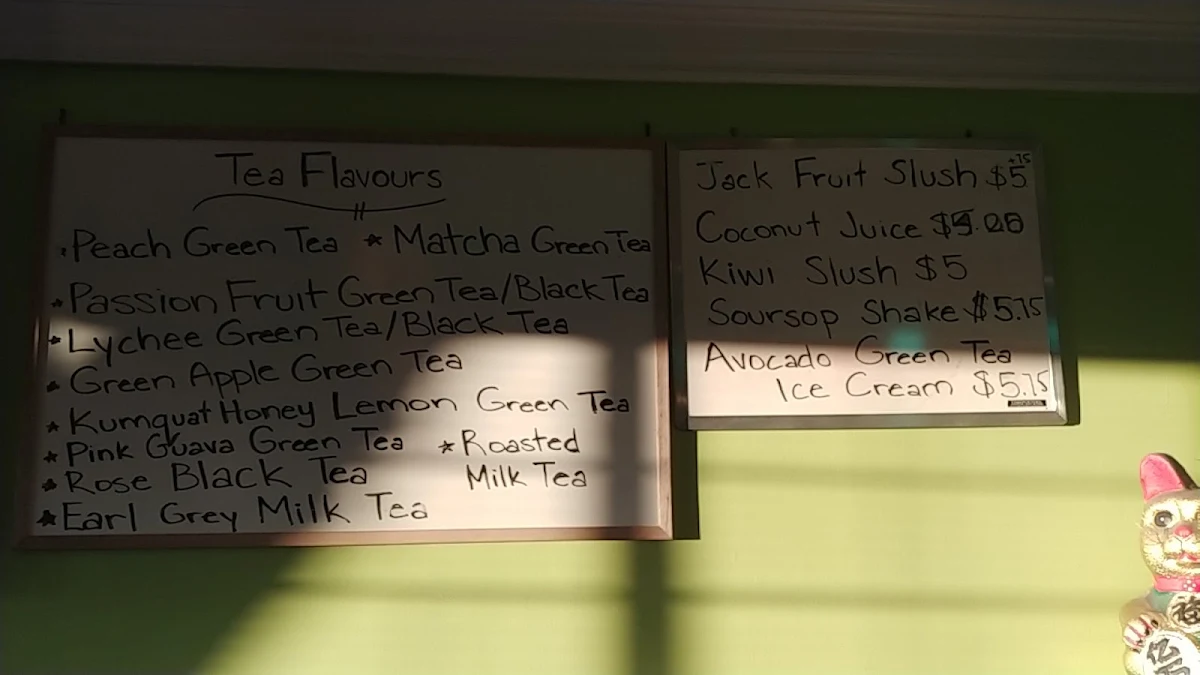 Tea Flavours
Peach Green Tea * Matcha Green Tea
* Passion Fruit Green Tea/Black Tea
* Lychee Green Tea/Black Tea
* Green Apple Green Tea
* Kumquat Honey Lemon Green Tea
* Pink Guava Green Tea * Roasted
Milk Tea
* Rose Black Tea
* Earl Grey Milk Tea
Jack Fruit Slush $5
Coconut Juice
Kiwi Slush $5
Soursop Shake $5.75
Avocado Green Tea
Ice Cream $5.75